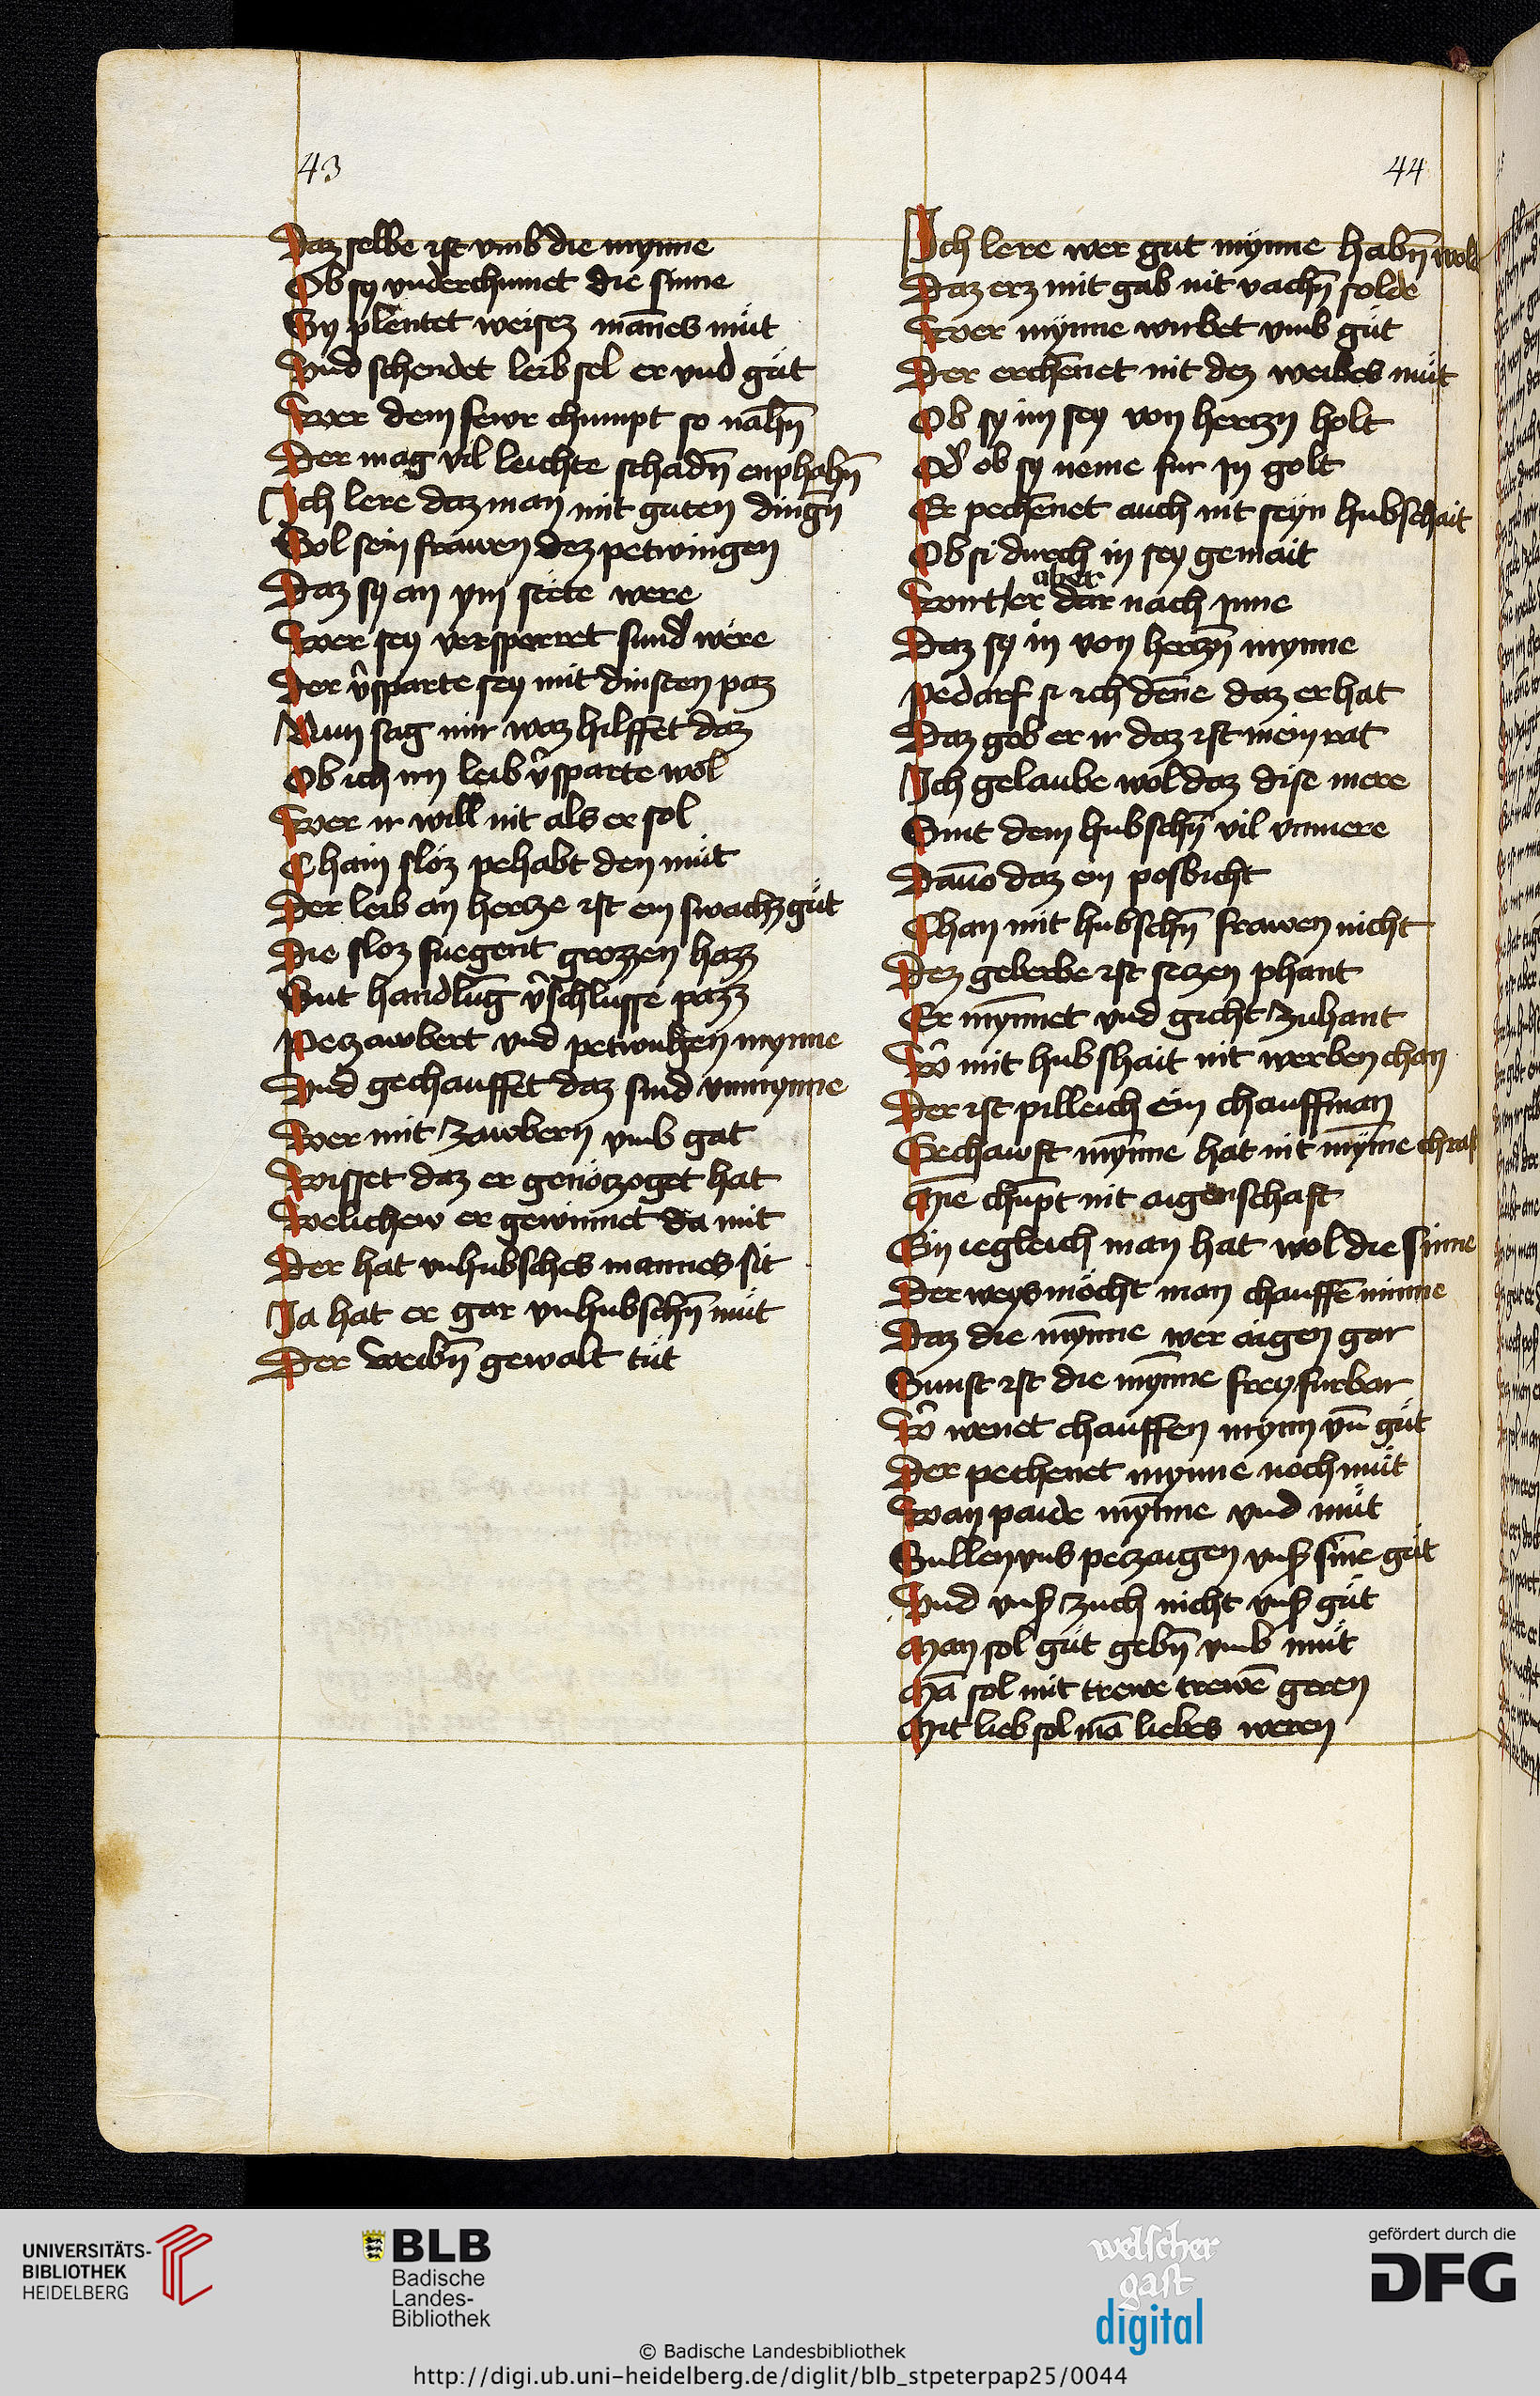 43
Daz selbe ist vmb die mynne
Ob sy vnderchumet die sinne
Sy plentet weisez mañes müt
Vnd schendet leib sel er vnd güt
Wer dem fewr chumpt so nahn̄
Der mag vil leichte schadn̄ enphahn̄
Ich lere daz man mit guten dingn̄
Sol sein frawen dez petwingen
Daz sy an ym stëte were
Wer sey versperret sund wëre
Der v̂sparte sey mit dinsten paz
Nun sag mir waz hilffet daz
Ob ich im leib v̂sparte wol
Wer ir will nit als er sol
Chain sloz pehabt den müt
Der leib an hertze ist ein swachz güt
Die sloz fuegent grozzen hazz
Gut handlūg v̂schlusse pazz
Pezawbert vnd petwuhen mynne
Vnd gechauffet daz sind vnmynne
Wer mit zawbern vmb gat
Wisset daz er genötzoget hat
Welichew er gewinnet da mit
Der hat vnhubsches mannes sit
Ja hat er gar vnhubschn̄ müt
Der weibn̄ gewalt tüt
44
Ich lere wer gut mynne habn̄ wold
Daz erz mit gab nit vachn̄ solde
Wer mynne wirbet vmb güt
Der erchēnet nit dez weibes müt
Ob sy im sey von hertzn holt
Od̾ ob sy neme fur in golt
Er pechēnet auch nit seyn hubschait
Ob si durch in sey gemait
Wirt er aber dar nach inne
Daz sy in von hertzn̄ mynne
Pedarf si ich deñe daz er hat
Daz geb er ir daz ist mein rat
Ich gelaube wol daz dise mere
Sint dem hubschn̄ vil vnmere
Dauo daz ein poswicht
Chan mit hubschn̄ frawen nicht
Dez geberbe ist setzen phant
Er mȳnnet vnd gicht zuhant
Wˆ mit hubshait nit werben chan
Der ist pilleich ein chauffman
Gechawft mȳnne hat nit mȳnne chraft
Mīe chūpt nit aigenschaft
Ein iegleich man hat wol die sinne
Der weys möcht man chauffē minne
Daz die mȳnne wer aigen gar
Sunst ist die mȳnne frey furbar
Wˆ wenet chauffen mynn vm̄ güt
Der pechenet mynne noch müt
Wan paide mȳnne vnd müt
Sullen vns pezaigen vns̾ siñe güt
Vnd vns̾ zuch nicht vns̾ güt
Man sol güt gebn̄ vmb müt
Mā sol mit trewe trewē geren
Mit lieb sol mā liebes weren
UNIVERSITÄTS-
BIBLIOTHEK
HEIDELBERG
BLB
Badische
Landes-
Bibliothek
welscher
gast
digital
gefördert durch die
DFG
© Badische Landesbibliothek
http://digi.ub.uni-heidelberg.de/diglit/blb_stpeterpap25/0044